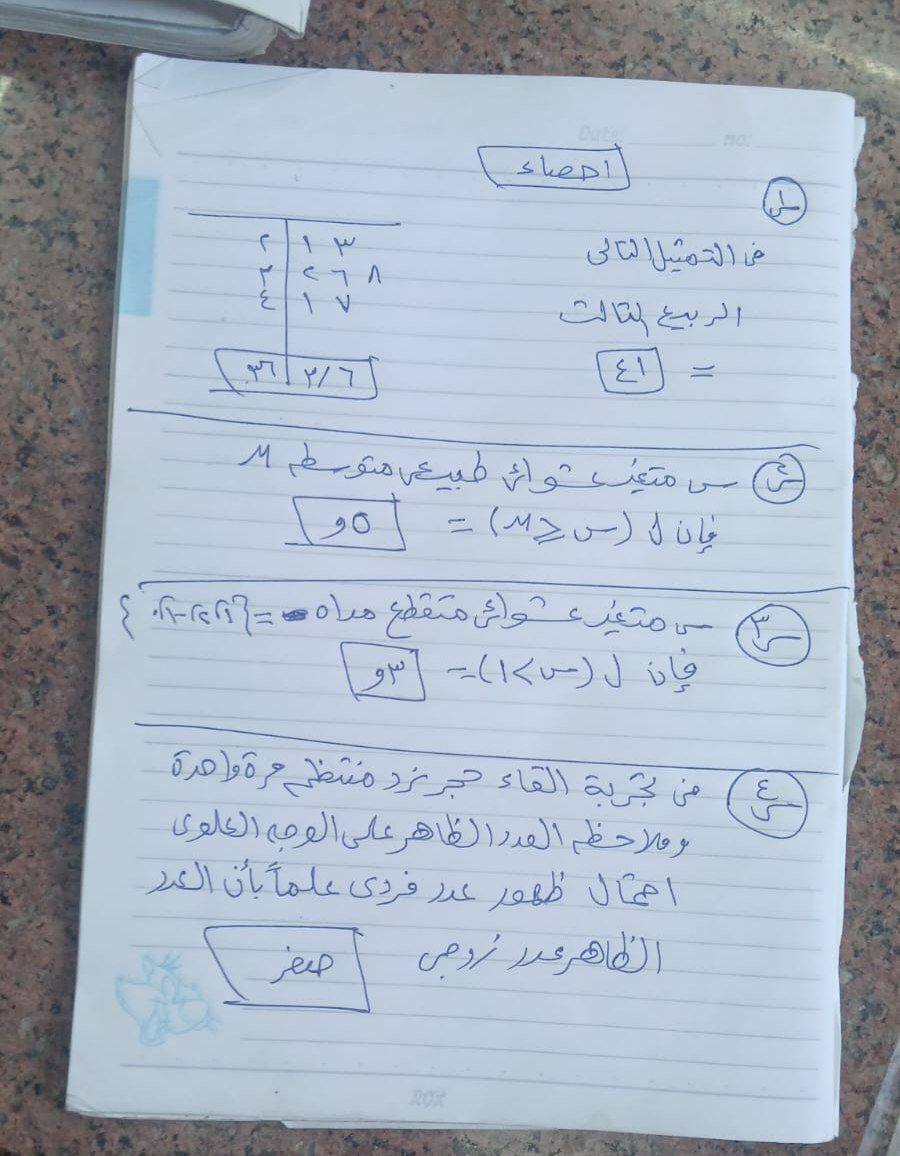 Date: no:
احصاء
س١
فى التمثيل التالى
الربيع الثالث
= ٤١
٢ | ١ ٣
٣ | ٢ ٦ ٨
٤ | ١ ٧
٣٦ | ٣/٦
س٢ س متغير عشوائى طبيعى متوسط μ
فإن ل (س ≥ μ) = ٥و
س٣ س متغير عشوائى متقطع مداه = {
فإن ل (س > ١) = ٣و
س٤ فى تجربة القاء حجر نرد منتظم مرة واحدة
وملاحظه العدد الظاهر على الوجه العلوى
احتمال ظهور عدد فردى علماً بأن العدد
الظاهر عدد زوجى صفر
ROX